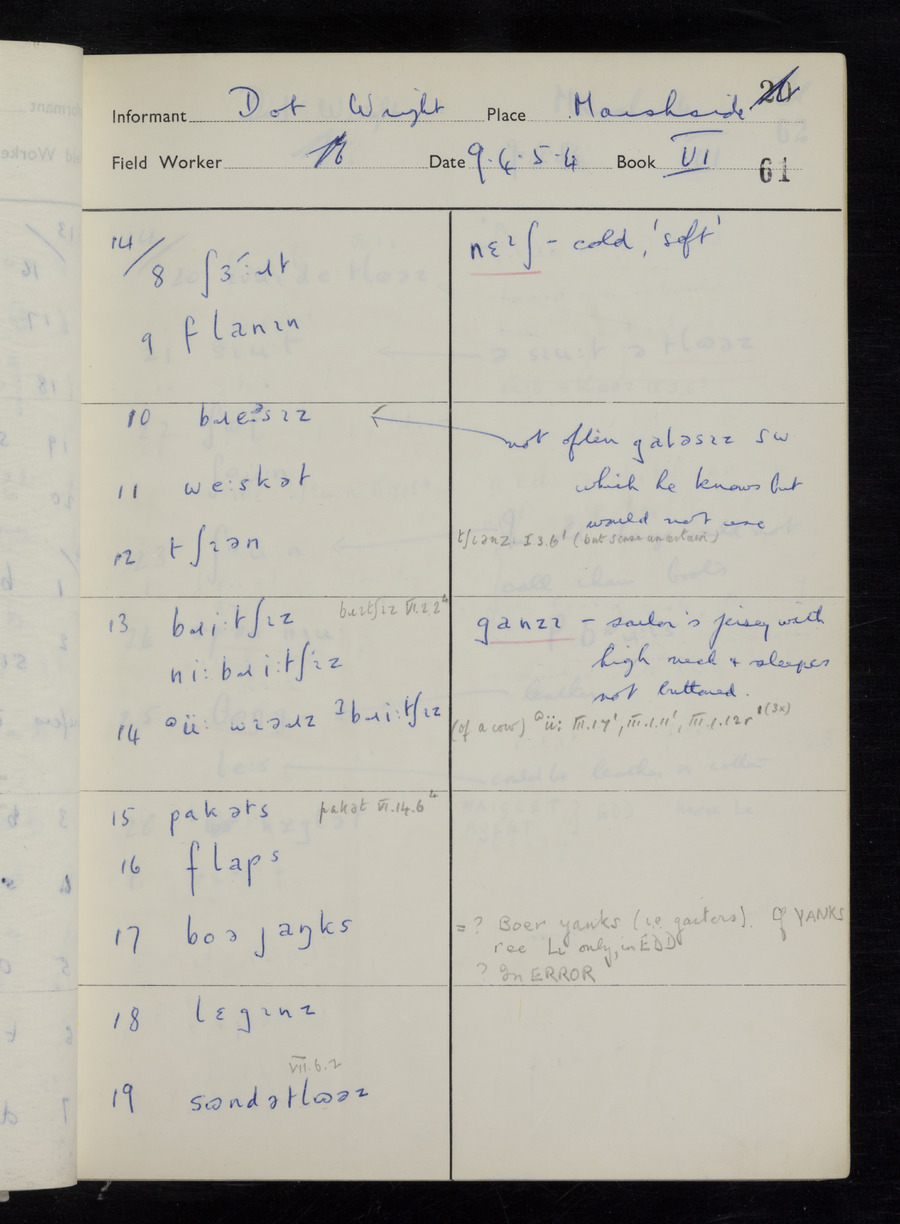 Informant Dot Wright Place Marshside 20
Field Worker Date 9.4.5.4 Book VI
61
14/8 ʃɜ˞ːɹt
9 flanɪn
10 bɹeːᵊsɪz
11 weːskət
12 tʃɪən
13 bɹiːtʃɪz bɹɪtʃɪz VI.2.2⁴
niː bɹiːtʃɪz
14 ᵊüː wɪəɹz ᵊbɹiːtʃɪz
15 pakəts pakət VI.14.6⁴
16 flapˢ
17 boə jaŋks
18 lɛgɪnz
VII.6.2
19 sɷndətlɷəz
nɛᶦʃ - cold, 'soft'
not often galəsɪz sw
which he knows but
would not use
tʃɪənz I 3.6' (but sense uncertain)
ganzɪ - sailor's jersey with
high neck + sleeves
not buttoned.
(of a cow) ᵊüː III.1.7', III.1.11', III.1.12r'(3x)
= ? Boer yanks (i.e. gaiters). Cf YANKS
rec Li only, in EDD
? In ERROR